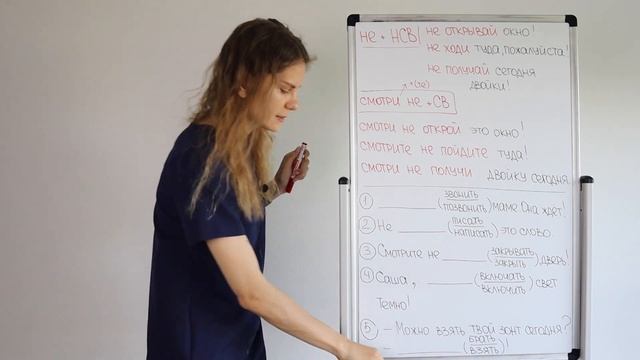 не + НСВ не открывай окно!
не ходи туда, пожалуйста!
не получай сегодня
двойки!
+(те)
смотри не + СВ
смотри не открой это окно!
смотрите не пойдите туда!
смотри не получи двойку сегодня
① ________ (звонить
позвонить) маме. Она ждёт!
② Не ________ (писать
написать) это слово
③ Смотрите не ________ (закрывать
закрыть) дверь!
④ Саша, ________ (включать
включить) свет
Темно!
⑤ – Можно взять твой зонт сегодня?
– ________ (брать
взять)!